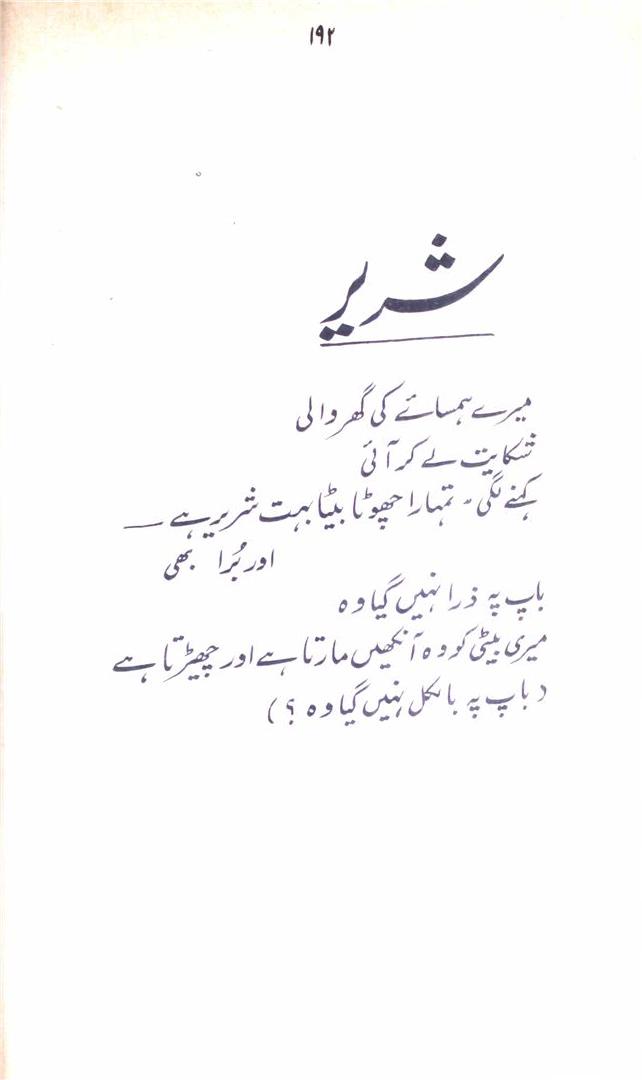 ۱۹۲
شریر
میرے ہمسائے کی گھر والی
شکایت لے کر آئی
کہنے لگی۔ تمہارا چھوٹا بیٹا بہت شریر ہے ــــ
اور بُرا بھی
باپ پہ ذرا نہیں گیا وہ
میری بیٹی کو وہ آنکھیں مارتا ہے اور چھیڑتا ہے
(باپ پہ بالکل نہیں گیا وہ ؟)